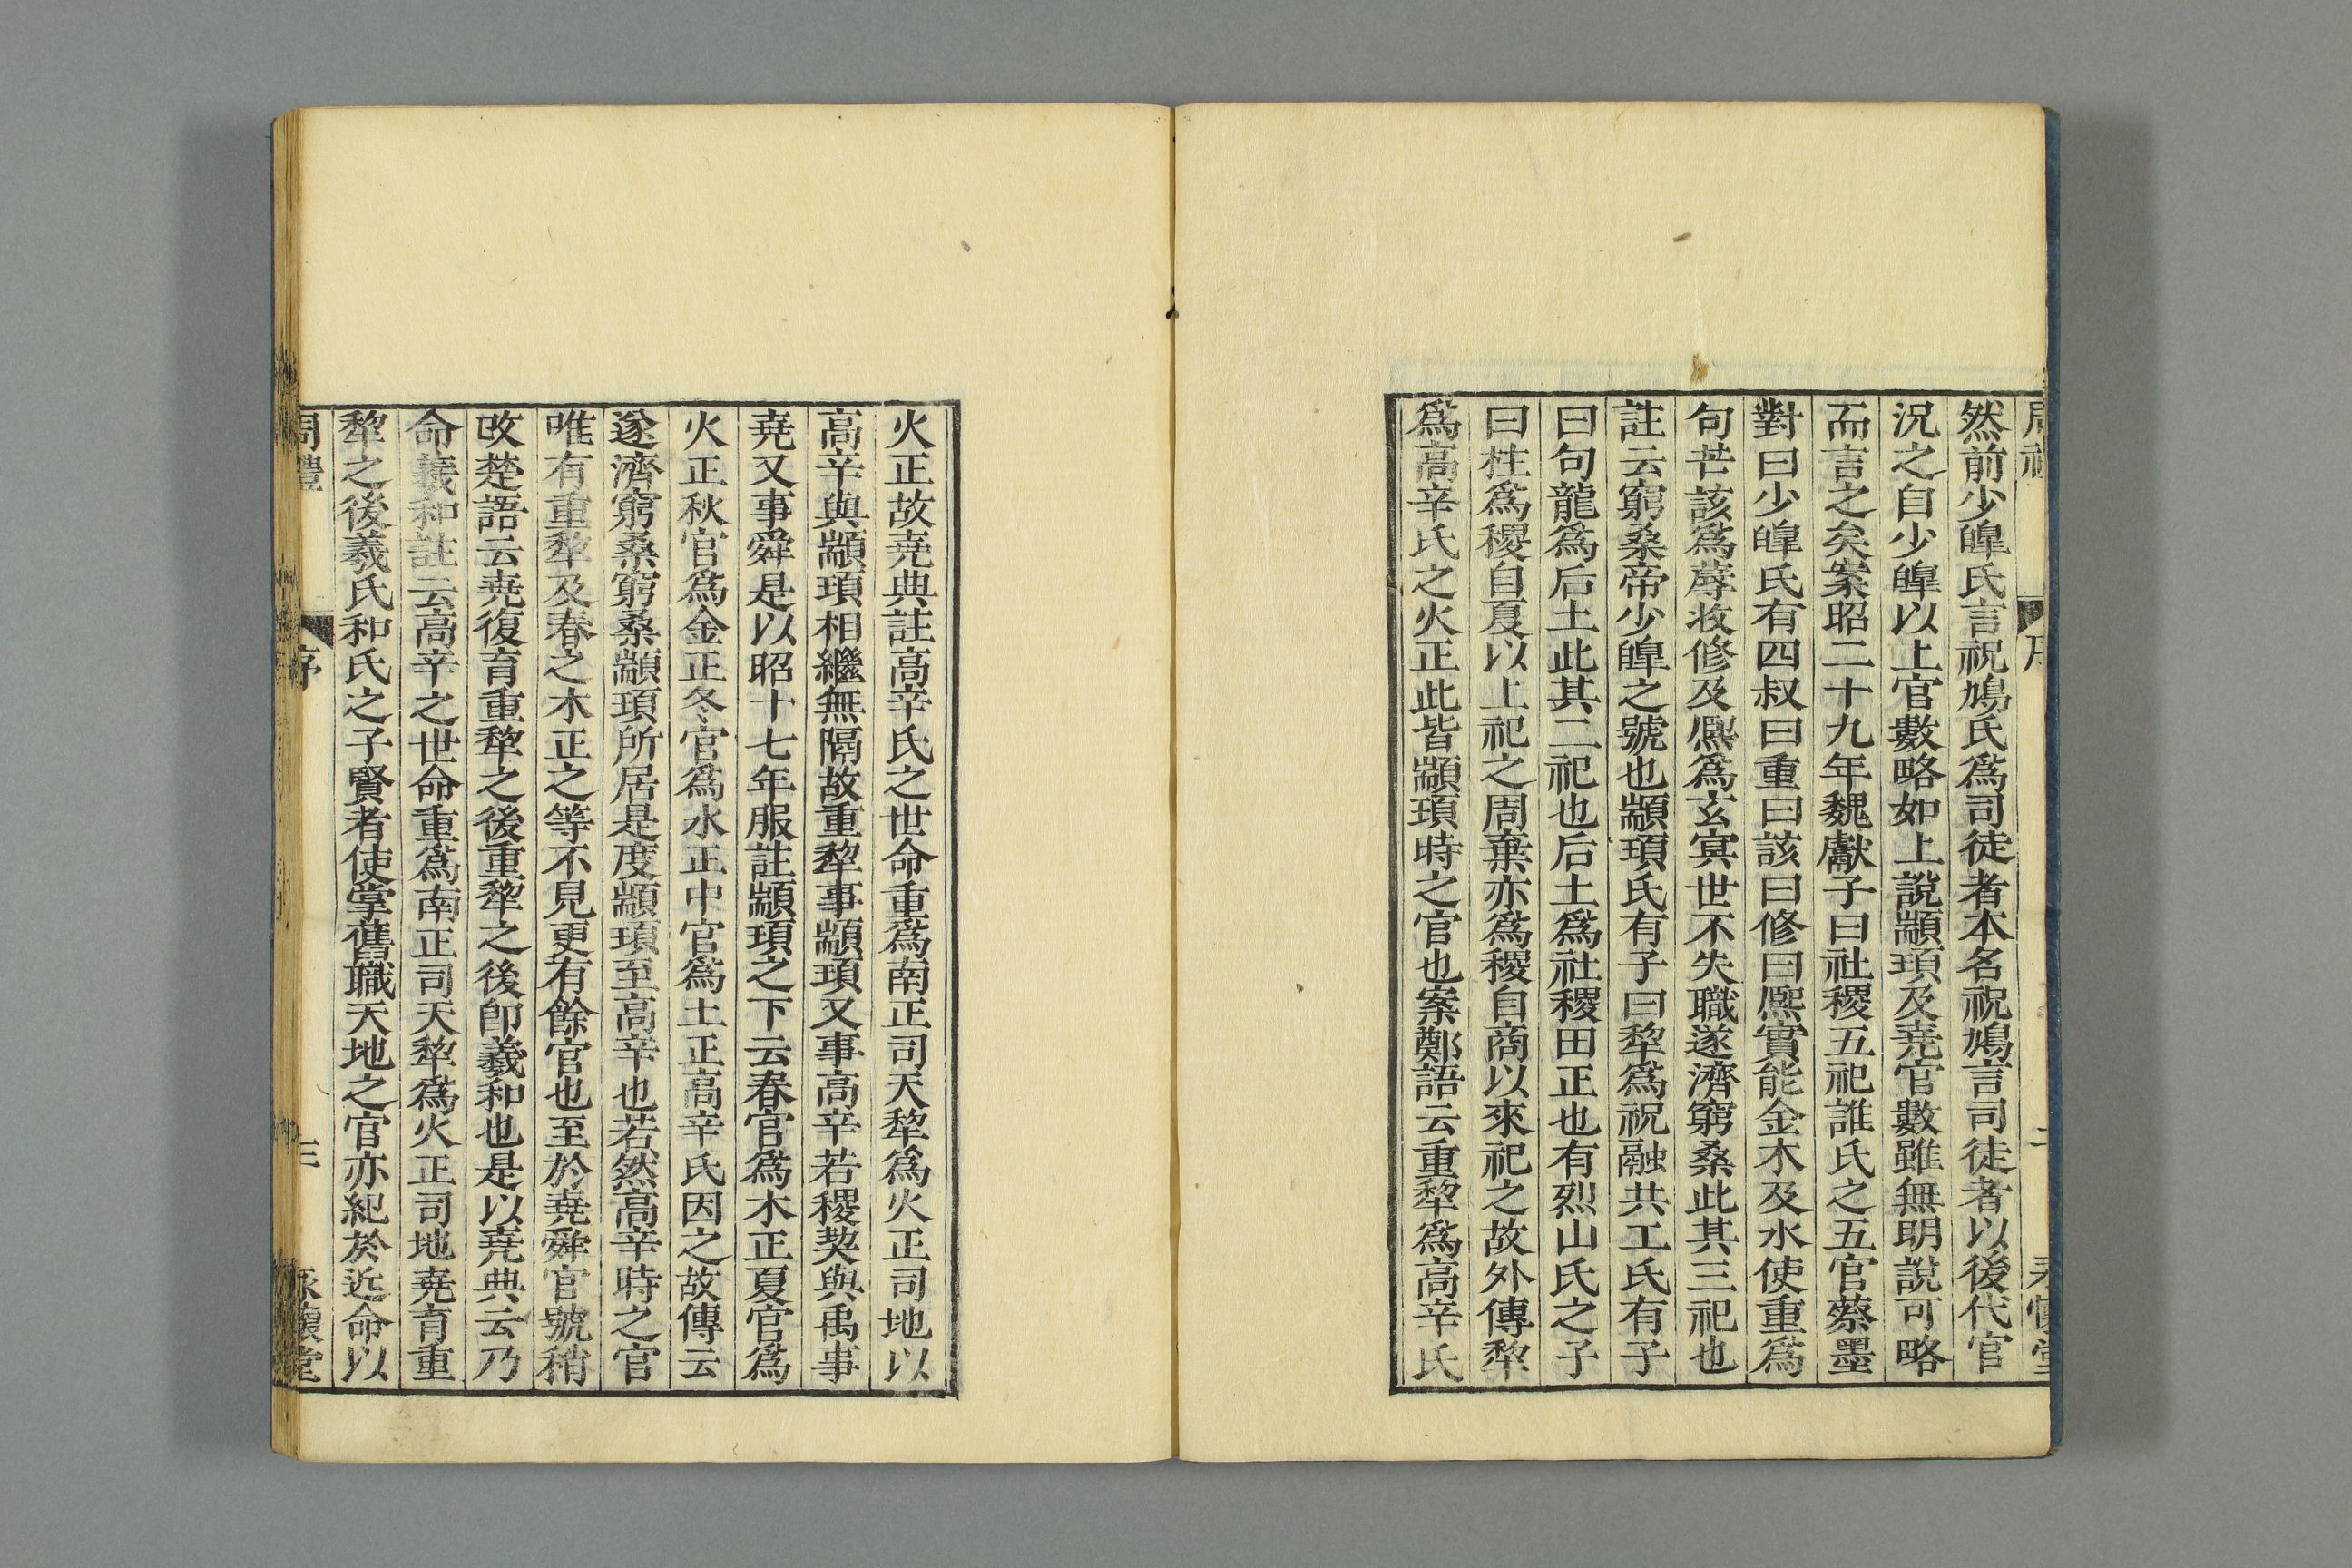 然前少皥氏言祝鳩氏爲司徒者本名祝鳩言司徒者以後代官
况之自少皥以上官數略如上說顓頊及堯官數雖無明說可略
而言之矣案昭二十九年魏獻子曰社稷五祀誰氏之五官蔡墨
對曰少皥氏有四叔曰重曰該曰修曰熈實能金木及水使重爲
句芒該爲蓐收修及熈爲玄冥世不失職遂濟窮桑此其三祀也
註云窮桑帝少皥之號也顓頊氏有子曰犂爲祝融共工氏有子
曰句龍爲后土此其二祀也后土爲社稷田正也有烈山氏之子
曰柱爲稷自夏以上祀之周棄亦爲稷自商以來祀之故外傳犂
爲高辛氏之火正此皆顓頊時之官也案鄭語云重犂爲高辛氏
火正故堯典註高辛氏之世命重爲南正司天犂爲火正司地以
高辛與顓頊相繼無隔故重犂事顓頊又事高辛若稷契與禹事
堯又事舜是以昭十七年服註顓頊之下云春官爲木正夏官爲
火正秋官爲金正冬官爲水正中官爲土正高辛氏因之故傳云
遂濟窮桑窮桑顓頊所居是度顓頊至高辛也若然高辛時之官
唯有重犂及春之木正之等不見更有餘官也至於堯舜官號稍
改楚語云堯復育重犂之後重犂之後卽羲和也是以堯典云乃
命羲和註云高辛之世命重爲南正司天犂爲火正司地堯育重
犂之後羲氏和氏之子賢者使掌舊職天地之官亦紀於近命以
周禮 序 三